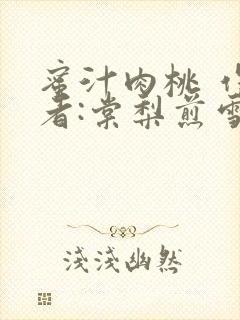 蜜汁肉桃 作
者:棠梨煎雪
淺淺幽然